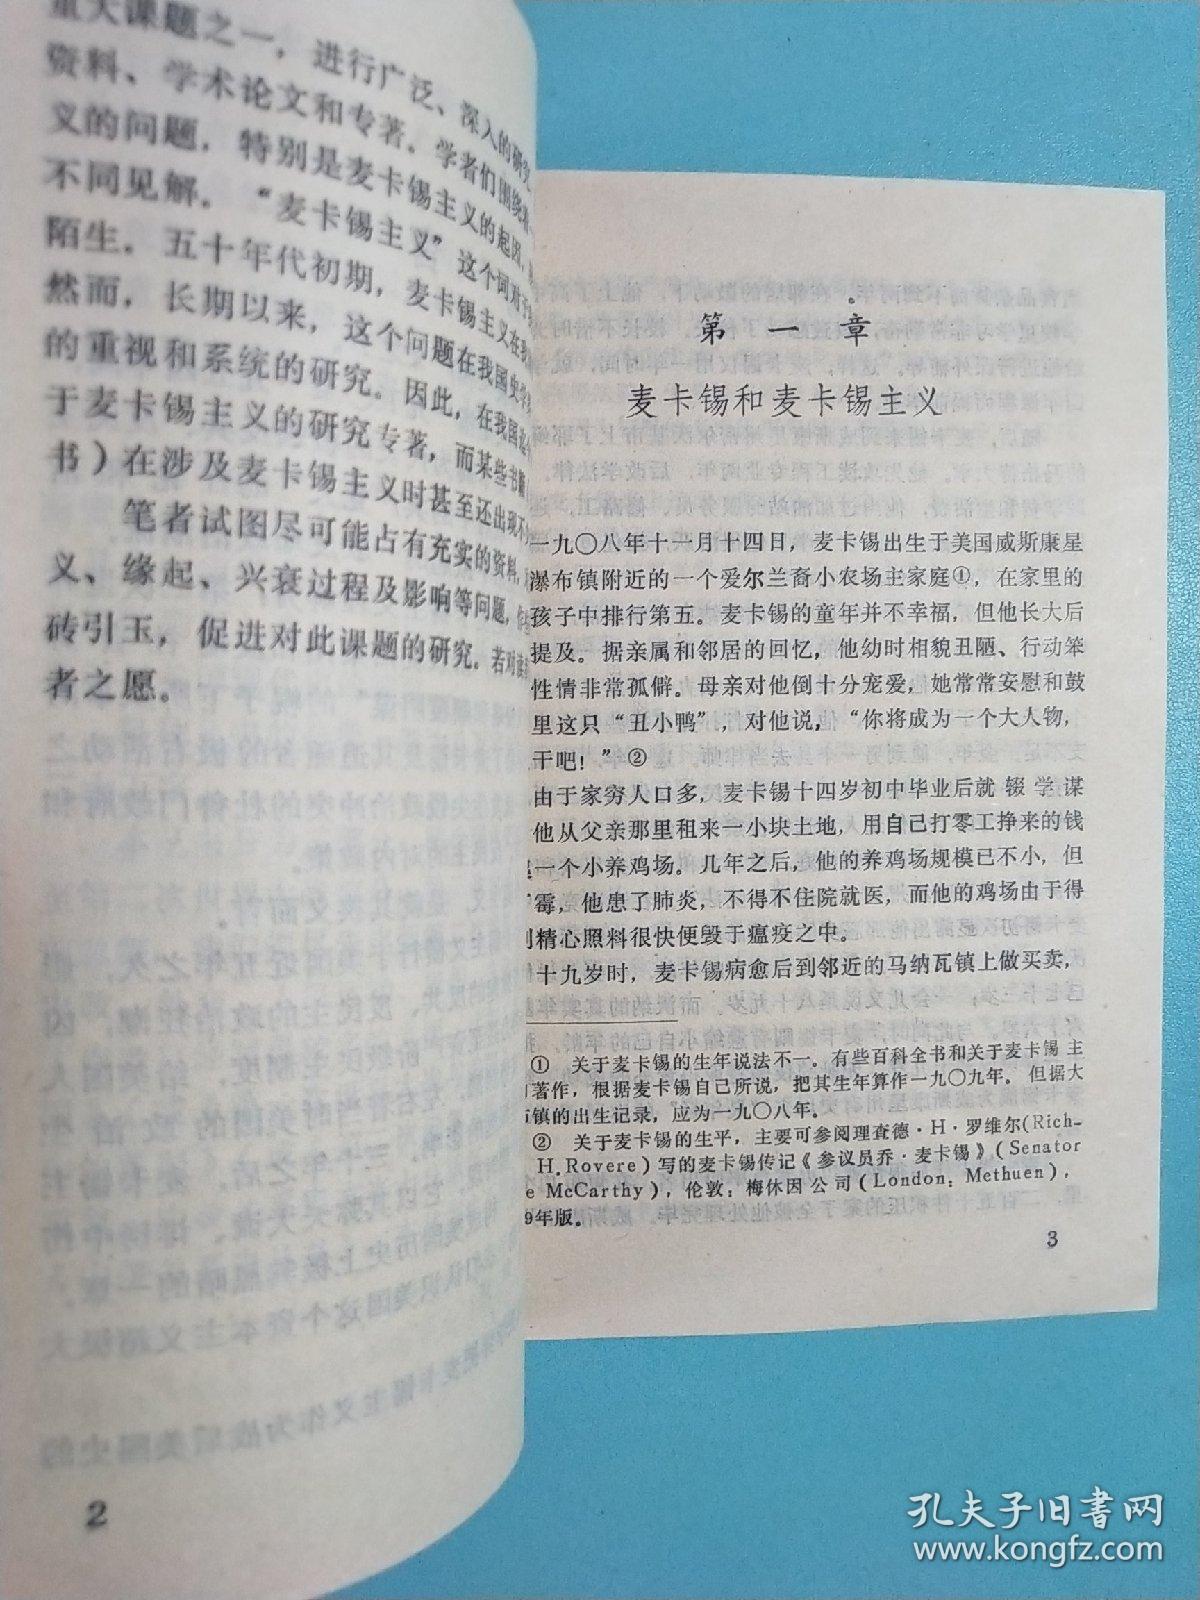 重大课题之一，进行广泛、深入的研究
资料、学术论文和专著。学者们围绕
义的问题，特别是麦卡锡主义的起因，
不同见解。“麦卡锡主义”这个词对于
陌生。五十年代初期，麦卡锡主义在我
然而，长期以来，这个问题在我国史学
的重视和系统的研究。因此，在我国
于麦卡锡主义的研究专著，而某些书
书）在涉及麦卡锡主义时甚至还出现不
笔者试图尽可能占有充实的资料，
义、缘起、兴衰过程及影响等问题，
砖引玉，促进对此课题的研究。若对读
者之愿。
2
第一章
麦卡锡和麦卡锡主义
一九〇八年十一月十四日，麦卡锡出生于美国威斯康星
瀑布镇附近的一个爱尔兰裔小农场主家庭①，在家里的
孩子中排行第五。麦卡锡的童年并不幸福，但他长大后
提及。据亲属和邻居的回忆，他幼时相貌丑陋、行动笨
性情非常孤僻。母亲对他倒十分宠爱，她常常安慰和鼓
里这只“丑小鸭”，对他说，“你将成为一个大人物，
干吧！”②
由于家穷人口多，麦卡锡十四岁初中毕业后就辍学谋
他从父亲那里租来一小块土地，用自己打零工挣来的钱
一个小养鸡场。几年之后，他的养鸡场规模已不小，但
霉，他患了肺炎，不得不住院就医，而他的鸡场由于得
到精心照料很快便毁于瘟疫之中。
十九岁时，麦卡锡病愈后到邻近的马纳瓦镇上做买卖，
① 关于麦卡锡的生年说法不一。有些百科全书和关于麦卡锡主
著作，根据麦卡锡自己所说，把其生年算作一九〇九年。但据大
镇的出生记录，应为一九〇八年。
② 关于麦卡锡的生平，主要可参阅理查德·H·罗维尔(Rich-
H.Rovere)写的麦卡锡传记《参议员乔·麦卡锡》(Senator
e McCarthy)，伦敦：梅休因公司(London：Methuen)，
9年版。
3
孔夫子旧书网
www.kongfz.com